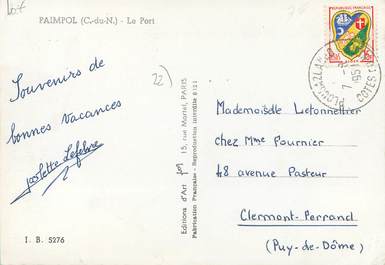 PAIMPOL (C.-du-N.) - Le Port
Souvenirs de
bonnes vacances
Josette Lefebvre
22)
I. B. 5276
Editions d'Art Jos 15, rue Martel, PARIS
Fabrication Française - Reproduction interdite
REPUBLIQUE FRANÇAISE
COTES
Mademoiselle Letonnellier
chez Mme Pournier
48 avenue Pasteur
Clermont-Ferrand
(Puy-de-Dôme)